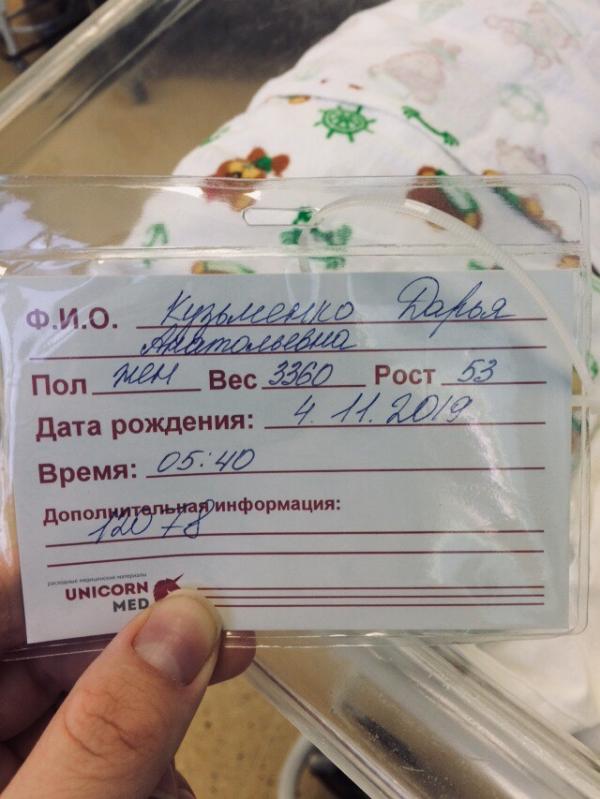 Ф.И.О. Кузьменко Дарья
Анатольевна
Пол жен Вес 3360 Рост 53
Дата рождения: 4.11.2019
Время: 05:40
Дополнительная информация:
12078
расходные медицинские материалы
UNICORN
MED